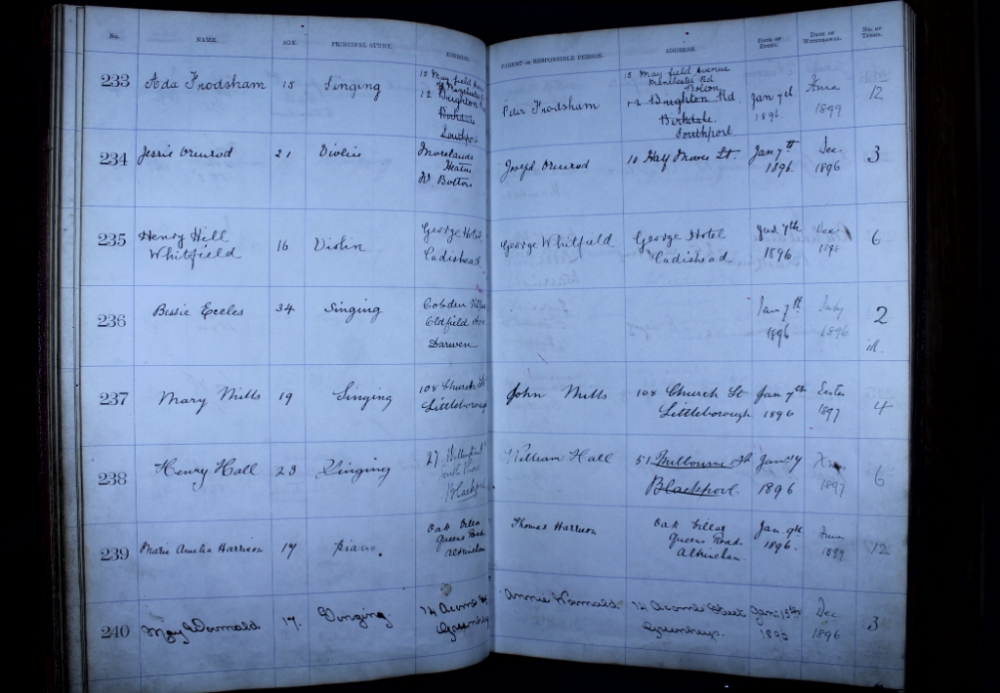 No. NAME. AGE. PRINCIPAL STUDY. ADDRESS. PARENT OR RESPONSIBLE PERSON. ADDRESS. DATE OF ENTRY. DATE OF WITHDRAWAL. No. OF TERMS.
233 Ada Frodsham 15 Singing
12 Brighton
Birkdale
Southport
Frodsham
15 May field Avenue
Manchester Rd
Bolton
12 Brighton Rd.
Birkdale.
Southport
Jan 7th
1896.
Xmas
1899
12
234 Jessie Ormrod 21 Violin
Moorlands
Heaton
Nr Bolton
Joseph Ormrod
10 Half Moon St.
Jan 7th
1896.
Dec.
1896
3
235 Henry Hill
Whitfield
16 Violin
George Hotel
Cadishead
George Whitfield
George Hotel
Cadishead
Jan 7th
1896.
Dec.
6
236 Bessie Eccles 34 Singing
Cobden
Oldfield
Darwen
Jan 7th
1896
July
1896
2
237 Mary Mills 19 Singing
108 Church St
Littleborough
John Mills
108 Church St
Littleborough
Jan 7th
1896
Easter
1897
4
238 Henry Hall 23 Singing
27
Blackpool
William Hall
51 Milbourne St
Blackpool.
1896
Xmas
1897
6
239 Marie Amelia Harrison 17 Piano.
Oak Villa
Queens Road
Altrincham
Thomas Harrison
Oak Villa
Queens Road.
Altrincham
Jan 9th
1896.
Xmas
1899
12
240 May Wormald 17. Singing
14 Acomb St
Greenheys
Annie Wormald.
14 Acomb Street
Greenheys.
Jan 15th
Dec.
1896
3